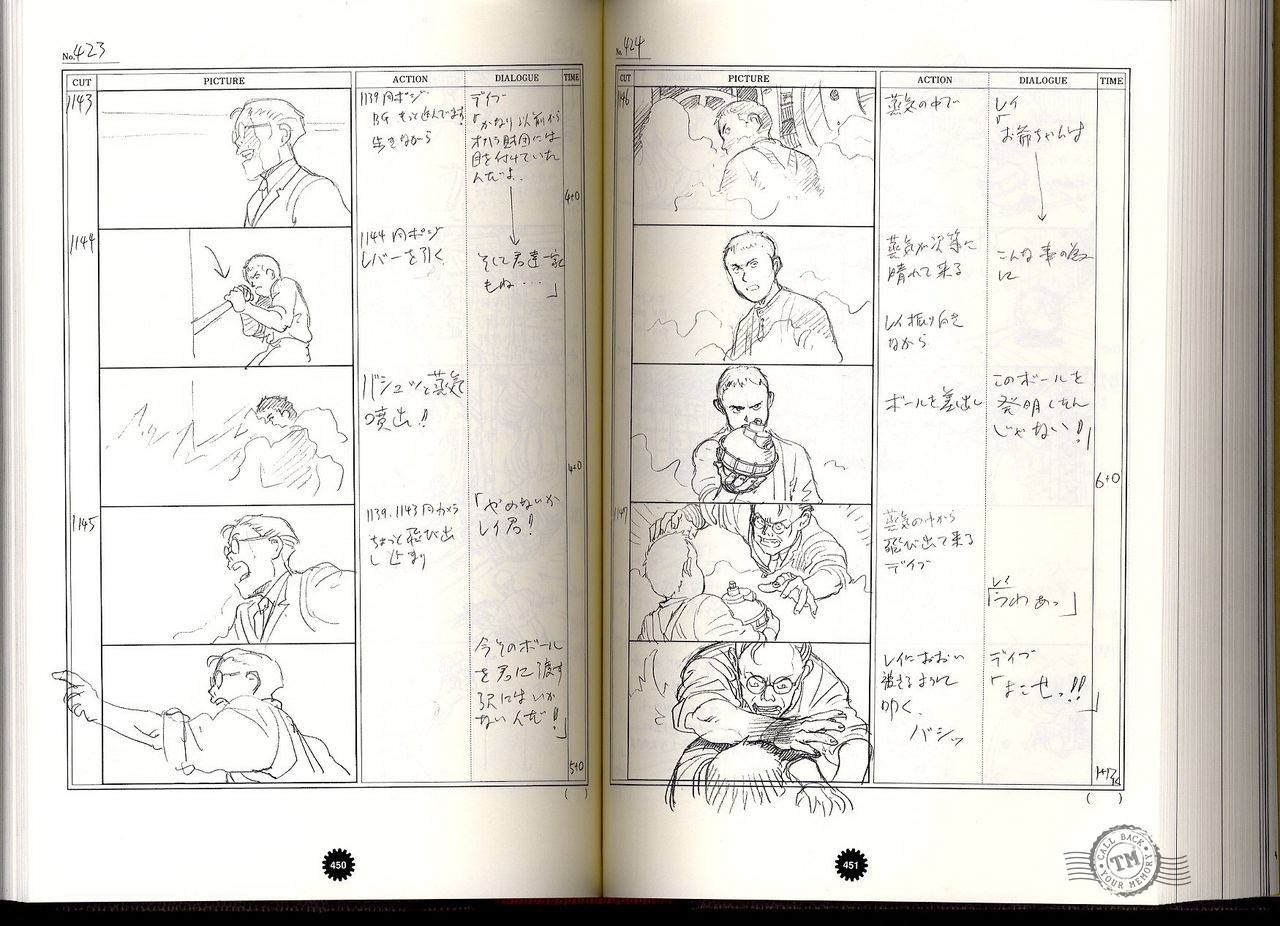 No. 423
CUT PICTURE ACTION DIALOGUE TIME
1143
1139同ポジ
BGもっと進んでます!
デイブ
「かなり以前から
オハラ財団には
目を付けていた
んだよ。
4+0
1144
1144同ポジ
レバーを引く
そして君達一家
もね…」
バシュッと蒸気
噴出!!
4+0
1145
1139、1143同カメラ
ちょっと飛び出
し止まり
「やめないか
レイ君!
今そのボール
を君に渡す
訳にはいか
ないんだ!」
5+0
( )
450
No. 424
CUT PICTURE ACTION DIALOGUE TIME
1146
蒸気の中で
レイ
「お爺ちゃんは
蒸気が次第に
晴れて来る
レイ振り向き
ながら
こんな事の為
に
ボールを差出し
このボールを
発明したん
じゃない!!
6+0
1147
蒸気の中から
飛び出て来る
デイブ
レイ
「うわぁっ」
レイにおおい
被さるように
叩く。
バシッ
デイブ
「よこせっ!!」
( )
451
CALL BACK
TM
YOUR MEMORY